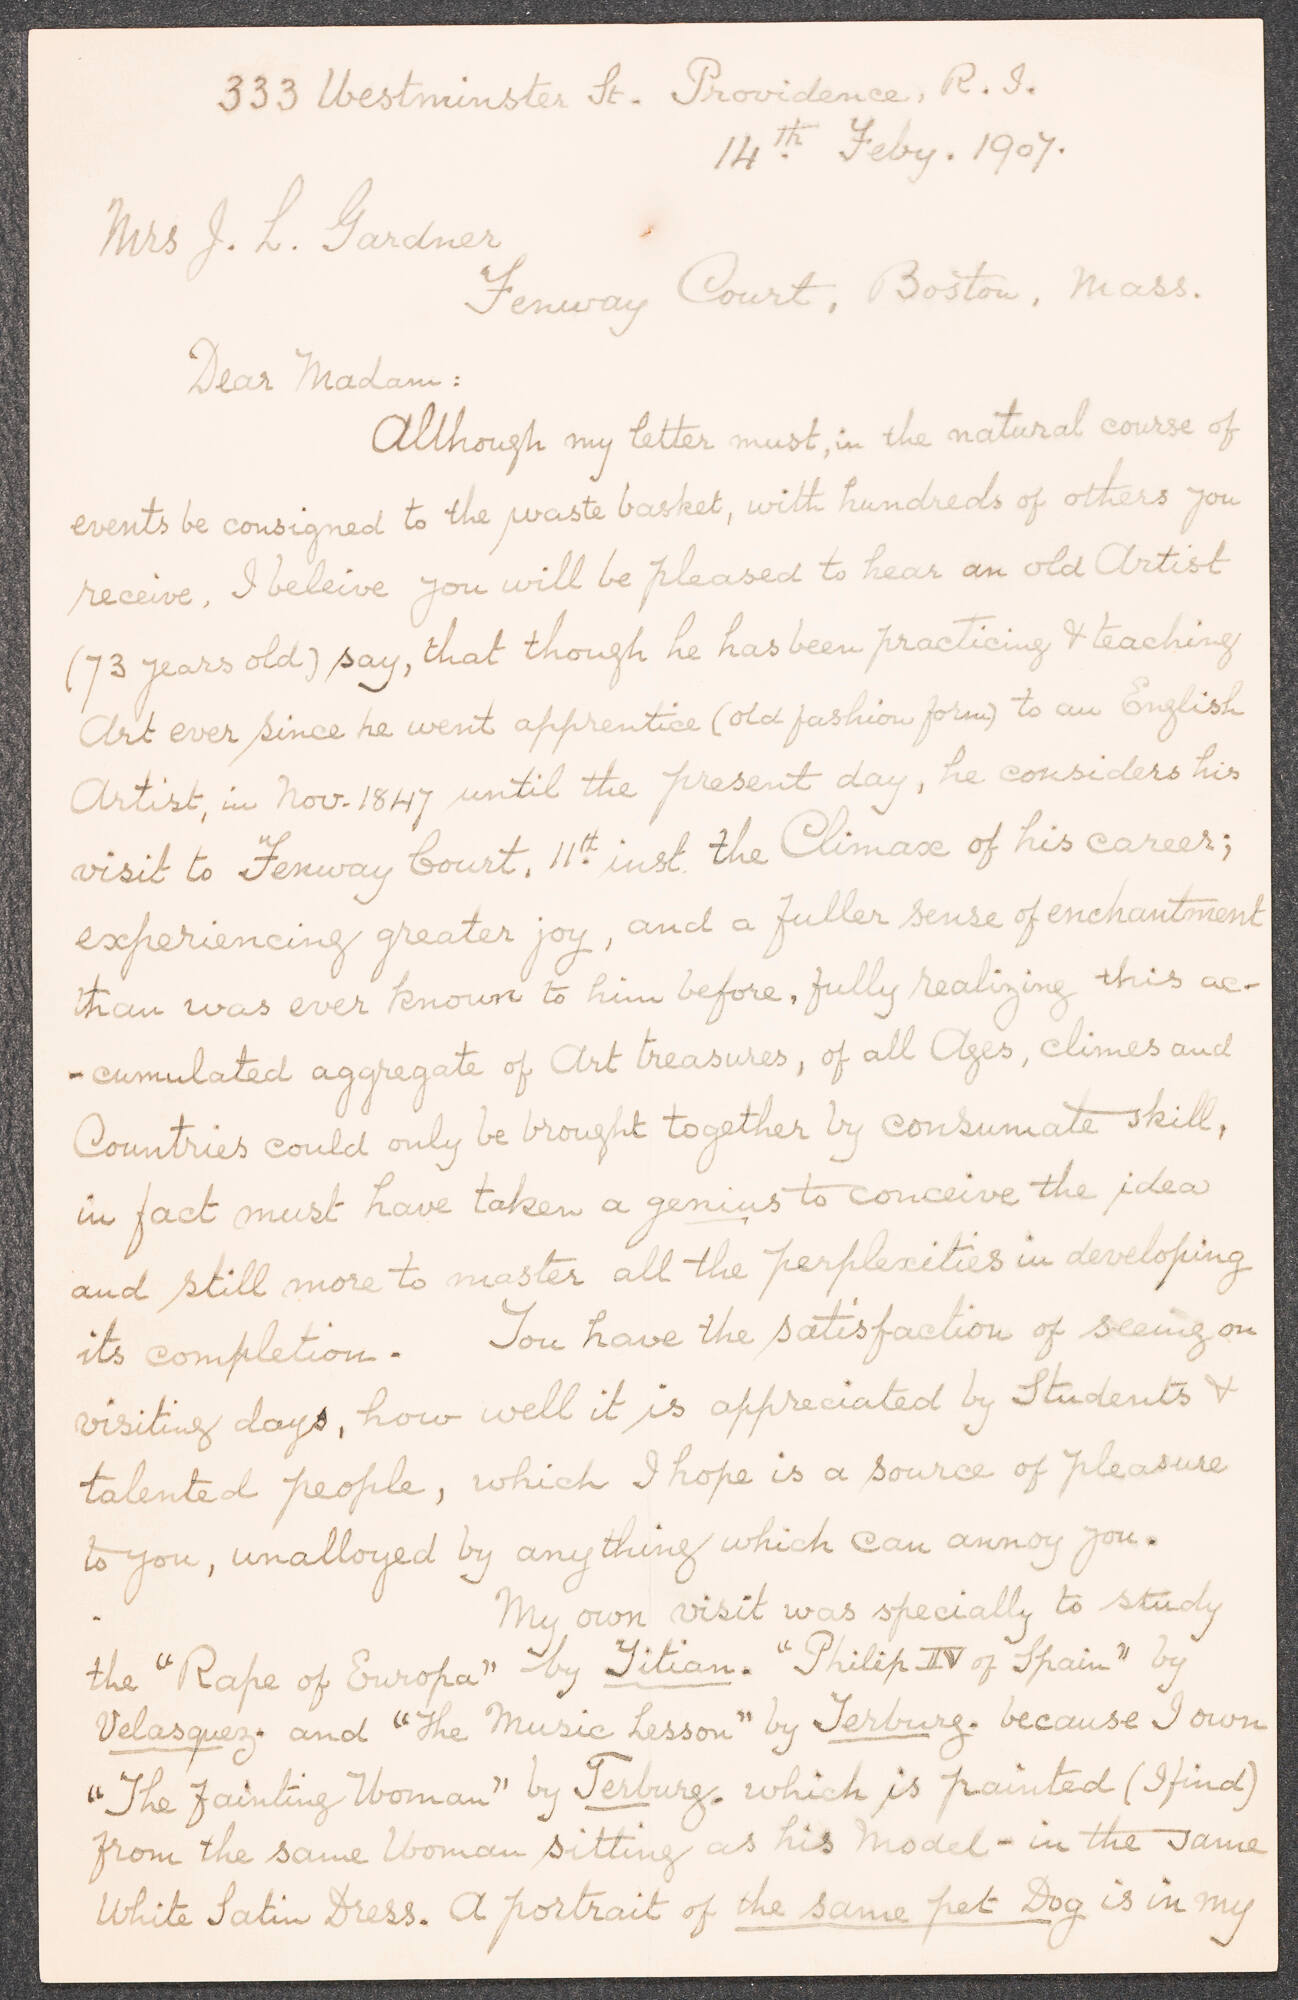 333 Westminster St. Providence, R. I.
14th. Feby. 1907.
Mrs J. L. Gardner
Fenway Court, Boston, Mass.
Dear Madam:
Although my letter must, in the natural course of
events be consigned to the waste basket, with hundreds of others you
receive, I beleive you will be pleased to hear an old Artist
(73 years old) say, that though he has been practicing & teaching
Art ever since he went apprentice (old fashion form) to an English
Artist, in Nov. 1847 until the present day, he considers his
visit to Fenway Court, 11th. inst. the Climax of his career;
experiencing greater joy, and a fuller sense of enchantment
than was ever known to him before, fully realizing this ac-
-cumulated aggregate of Art treasures, of all Ages, climes and
Countries could only be brought together by consumate skill,
in fact must have taken a genius to conceive the idea
and still more to master all the perplexities in developing
its completion. You have the satisfaction of seeing on
visiting days, how well it is appreciated by Students &
talented people, which I hope is a source of pleasure
to you, unalloyed by anything which can annoy you.
My own visit was specially to study
the "Rape of Europa" by Titian. "Philip IV of Spain" by
Velasquez. and "The Music Lesson" by Terburg. because I own
"The Fainting Woman" by Terburg. which is painted (I find)
from the same Woman sitting as his Model - in the same
White Satin Dress. A portrait of the same pet Dog is in my